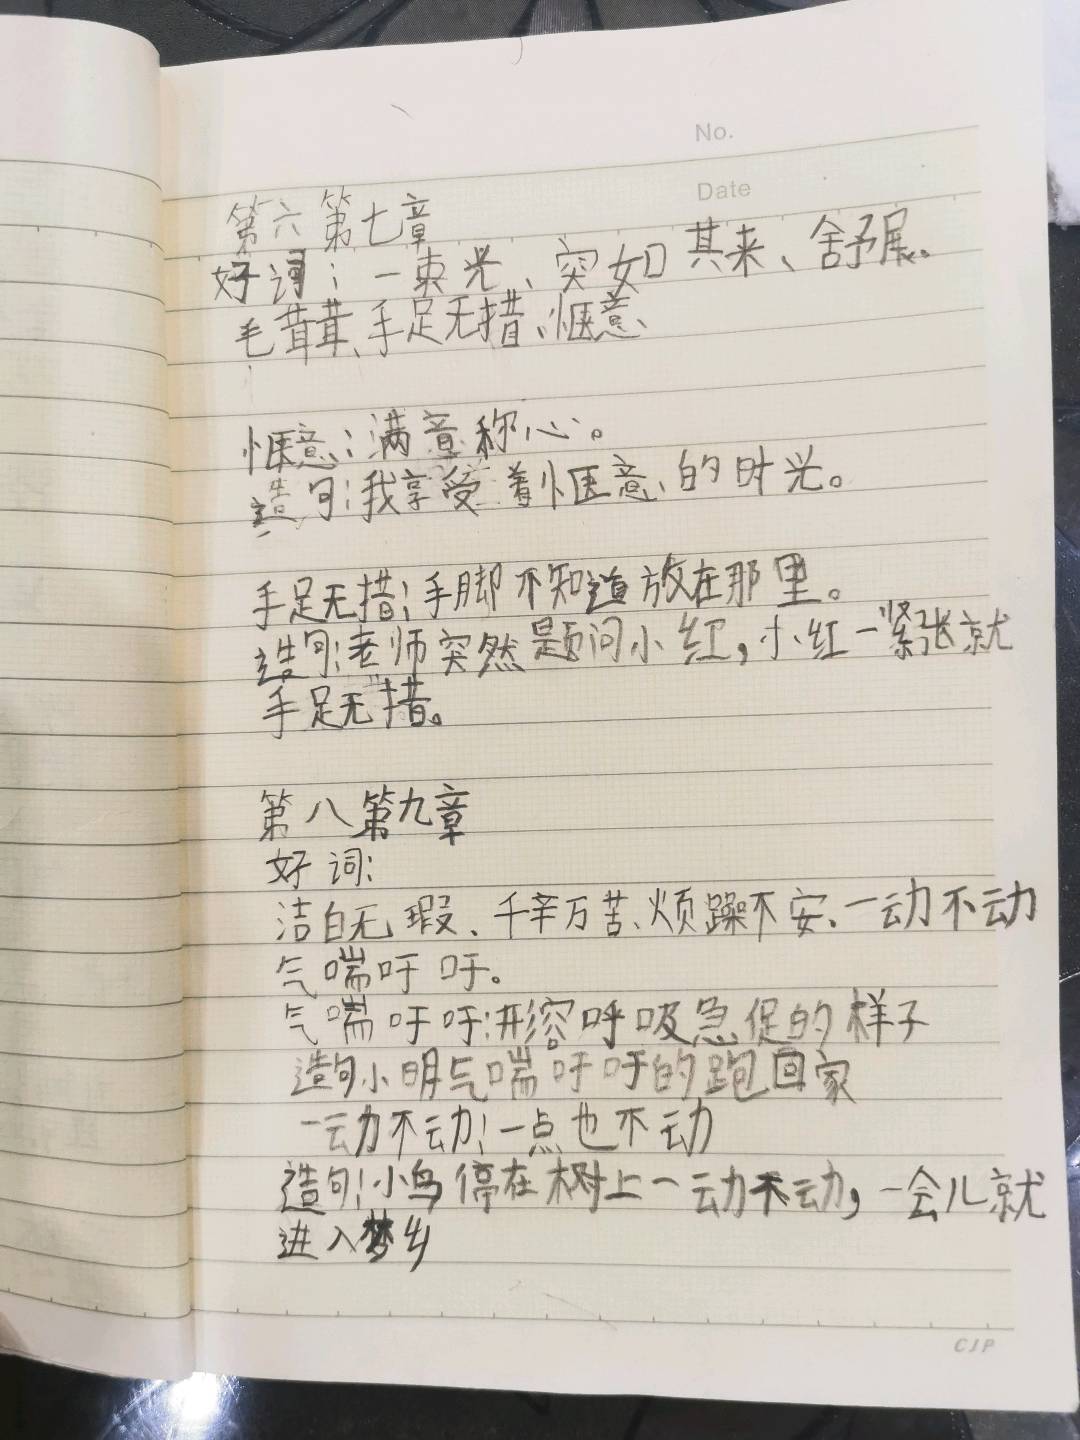 No.
Date
第六第七章
好词:一束光、突如其来、舒展、
毛茸茸、手足无措、惬意
惬意:满意称心。
造句:我享受着惬意的时光。
手足无措:手脚不知道放在那里。
造句:老师突然提问小红,小红一紧张就
手足无措。
第八第九章
好词:
洁白无瑕、千辛万苦、烦躁不安、一动不动
气喘吁吁。
气喘吁吁:形容呼吸急促的样子
造句小明气喘吁吁的跑回家
一动不动:一点也不动
造句:小鸟停在树上一动不动,一会儿就
进入梦乡
CJP